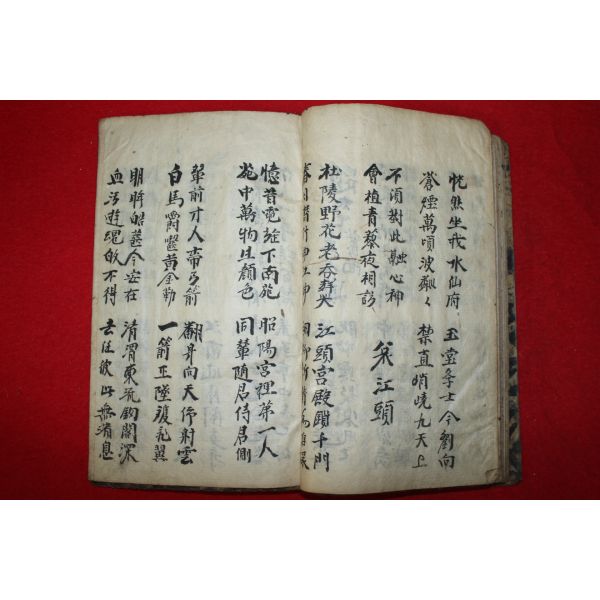 恍然坐我水仙府 玉堂學士今劉向
蒼煙萬頃波粼々 禁直岧嶢九天上
不須對此融心神
會植青藜夜相訪
哀江頭
杜陵野花老吞群哭 江頭宮殿鎖千門
春日潛行曲江曲
憶昔霓旌下南苑 昭陽宮裡第一人
苑中萬物且顏色 同輦随君侍君側
輦前才人帶弓箭 翻身向天仰射雲
白馬嚼齧黃金勒 一箭正墜雙飛翼
明眸皓齒今安在 清渭東流劍閣深
血污遊魂歸不得 去住彼此無消息